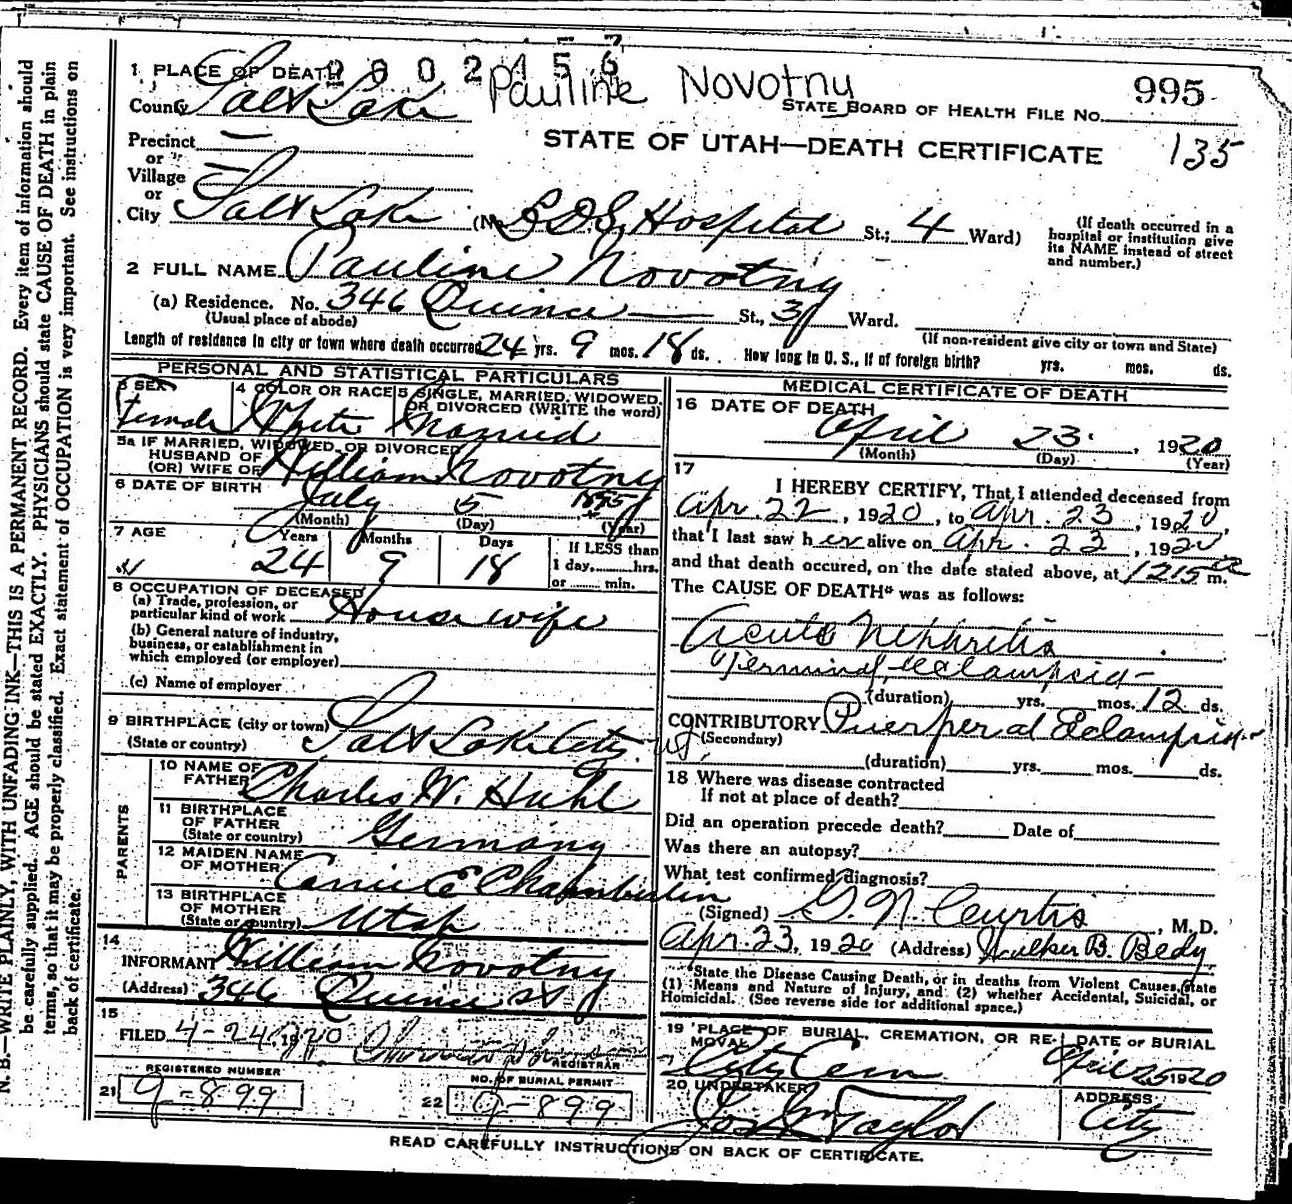 N. B.—WRITE PLAINLY, WITH UNFADING INK—THIS IS A PERMANENT RECORD. Every item of information should
be carefully supplied. AGE should be stated EXACTLY. PHYSICIANS should state CAUSE OF DEATH in plain
terms, so that it may be properly classified. Exact statement of OCCUPATION is very important. See instructions on
back of certificate.
Pauline Novotny
1 PLACE OF DEATH
County Salt Lake
STATE BOARD OF HEALTH FILE No. 995
STATE OF UTAH—DEATH CERTIFICATE 135
Precinct —
or
Village —
or
City Salt Lake (No. L.D.S. Hospital St.; 4 Ward)
(If death occurred in a
hospital or institution give
its NAME instead of street
and number.)
2 FULL NAME Pauline Novotny
(a) Residence. No. 346 Quince St., 3 Ward.
(Usual place of abode)
(If non-resident give city or town and State)
Length of residence in city or town where death occurred 24 yrs. 9 mos. 18 ds. How long in U. S., if of foreign birth? yrs. mos. ds.
PERSONAL AND STATISTICAL PARTICULARS
3 SEX Female
4 COLOR OR RACE White
5 SINGLE, MARRIED, WIDOWED,
OR DIVORCED (WRITE the word)
Married
5a IF MARRIED, WIDOWED, OR DIVORCED
HUSBAND OF
(OR) WIFE OF William Novotny
6 DATE OF BIRTH July 5 1895
(Month) (Day) (Year)
7 AGE Years Months Days
24 9 18
If LESS than
1 day, hrs.
or min.
8 OCCUPATION OF DECEASED
(a) Trade, profession, or
particular kind of work House wife
(b) General nature of industry,
business, or establishment in
which employed (or employer)
(c) Name of employer
9 BIRTHPLACE (city or town)
(State or country) Salt Lake City
PARENTS
10 NAME OF
FATHER Charles W. Huhl
11 BIRTHPLACE
OF FATHER
(State or country) Germany
12 MAIDEN NAME
OF MOTHER Carrie E Chamberlin
13 BIRTHPLACE
OF MOTHER
(State or country) Utah
14
INFORMANT William Novotny
(Address) 346 Quince St
15
FILED 4-24-1920
REGISTRAR
REGISTERED NUMBER
21 9-899
NO. OF BURIAL PERMIT
22 9-899
MEDICAL CERTIFICATE OF DEATH
16 DATE OF DEATH
April 23, 1920
(Month) (Day) (Year)
17
I HEREBY CERTIFY, That I attended deceased from
Apr. 22, 1920, to Apr. 23, 1920,
that I last saw her alive on Apr. 23, 1920,
and that death occured, on the date stated above, at 1215 m.
The CAUSE OF DEATH* was as follows:
Acute Nephritis
Terminal, eclampsia-
(duration) yrs. mos. 12 ds.
CONTRIBUTORY Puerperal Eclampsia
(Secondary)
(duration) yrs. mos. ds.
18 Where was disease contracted
If not at place of death?
Did an operation precede death? Date of
Was there an autopsy?
What test confirmed diagnosis?
(Signed) G. N. Curtis, M. D.
Apr. 23, 1920 (Address) Walker B. Bedy
*State the Disease Causing Death, or in deaths from Violent Causes, state
(1) Means and Nature of Injury, and (2) whether Accidental, Suicidal, or
Homicidal. (See reverse side for additional space.)
19 PLACE OF BURIAL, CREMATION, OR RE-
MOVAL
City Cem
DATE OF BURIAL
April 25 1920
20 UNDERTAKER
Taylor
ADDRESS
City
READ CAREFULLY INSTRUCTIONS ON BACK OF CERTIFICATE.